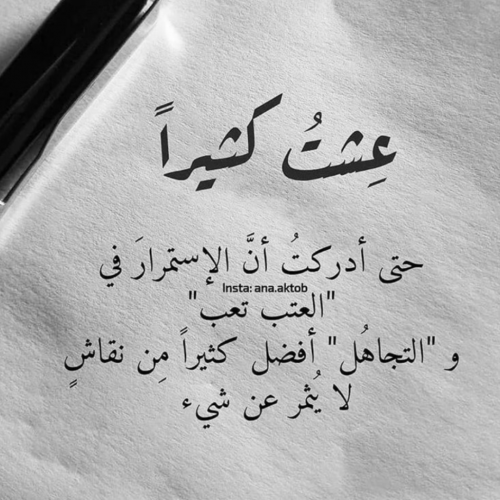 عِشتُ كثيراً
حتى أدركتُ أنَّ الإستمرارَ في
Insta: ana.aktob
"العتب تعب"
و "التجاهُل" أفضل كثيراً مِن نقاشٍ
لا يُثمر عن شيء